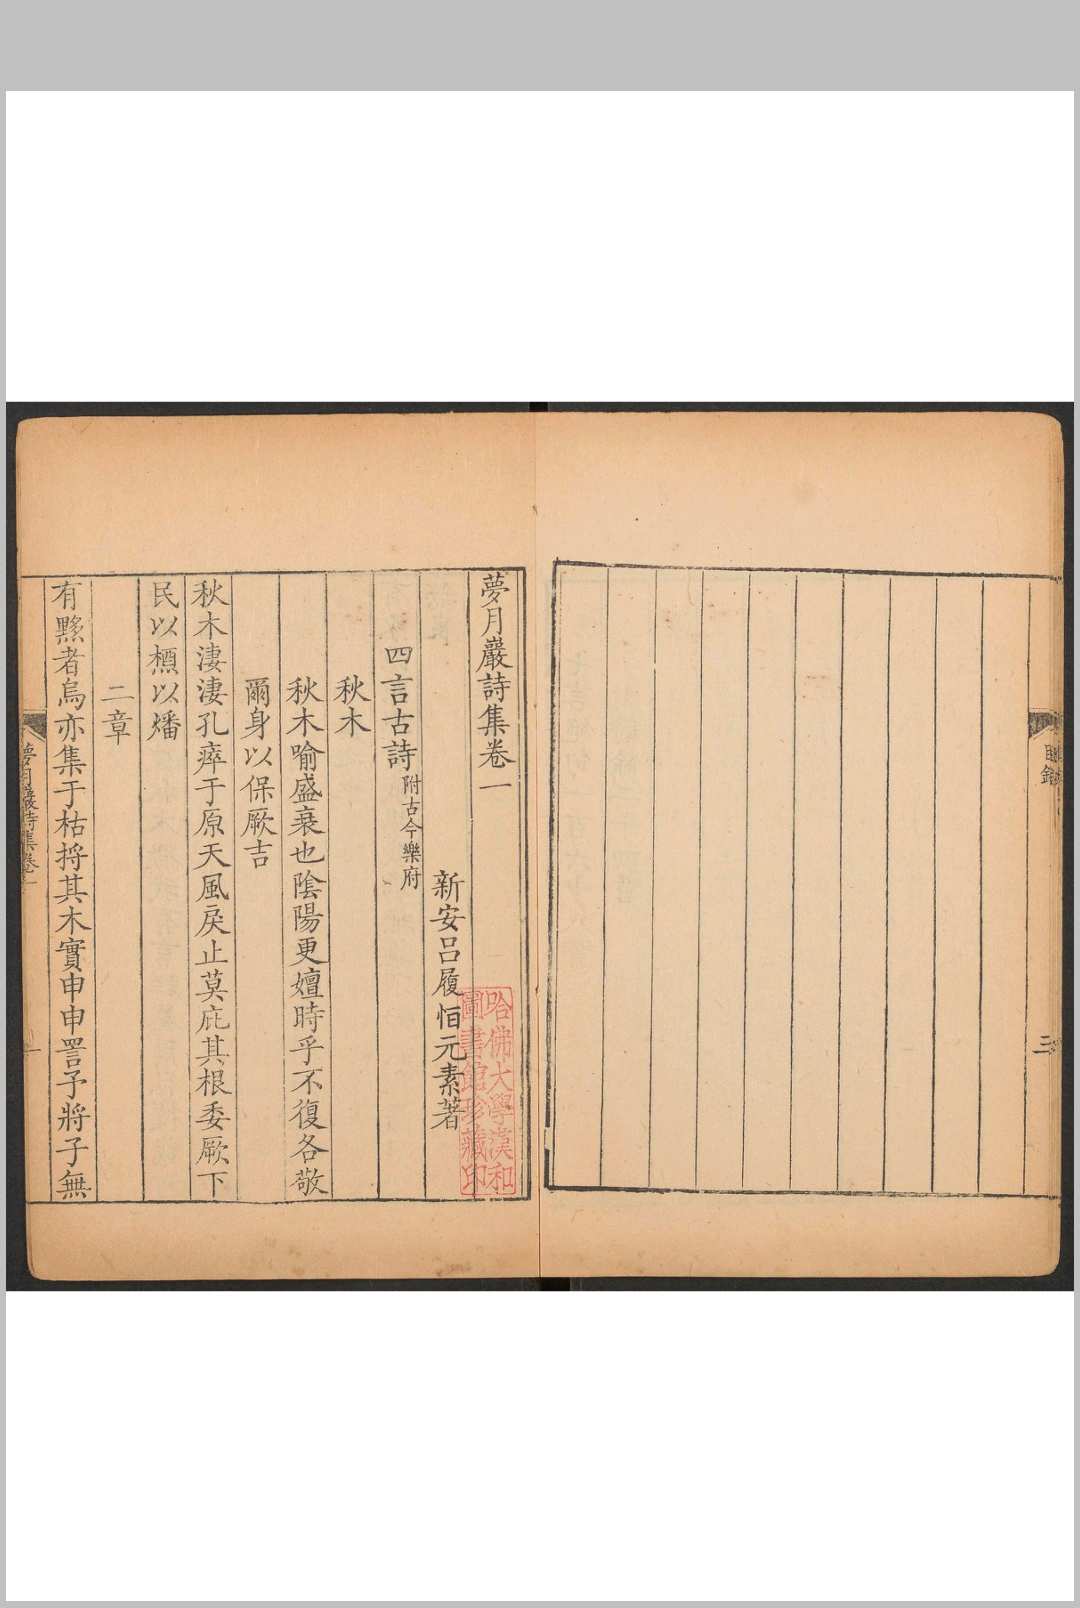 目錄
三
夢月巖詩集卷一
新安呂履恒元素著
哈佛大學漢和
圖書館珍藏印
四言古詩 附古今樂府
秋木
秋木喻盛衰也陰陽更嬗時乎不復各敬
爾身以保厥吉
秋木淒淒孔瘁于原天風戾止莫庇其根委厥下
民以槱以燔
二章
有黟者烏亦集于枯捋其木實申申詈予將子無
夢月巖詩集卷一
一